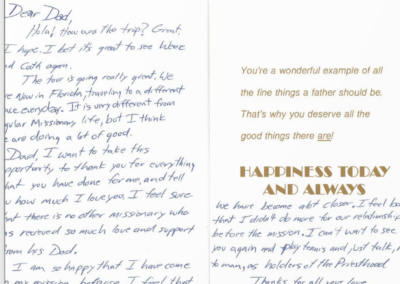 Dear Dad,
Hola! How was the trip? Great,
I hope. I bet it's great to see
and Cath again.
The tour is going really great. We
are Now in Florida, traveling to a different
place everyday. It is very different from
regular Missionary life, but I think
we are doing a lot of good.
Dad, I want to take this
opportunity to thank you for everything
that you have done for me, and tell
you how much I love you. I feel sure
that there is no other missionary who
has received so much love and support
from his Dad.
I am so happy that I have come
on my mission, because I feel that
You're a wonderful example of all
the fine things a father should be.
That's why you deserve all the
good things there are!
HAPPINESS TODAY
AND ALWAYS
we have become a lot closer. I feel bad
that I didn't do more for our relationship
before the mission. I can't wait to see
you again and play tennis and just talk, man
to man, as holders of the Priesthood
Thanks for all your love